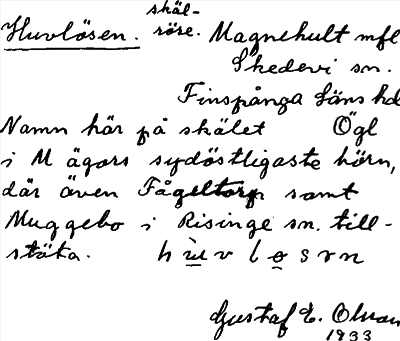 skäl-
Huvlösen. röse. Magnehult mfl
Skedevi sn.
Finspånga läns hd
Namn här på skälet Ögl
i M ägors sydöstligaste hörn,
där även Fågeltorp samt
Muggebo i Risinge sn. till-
stöta. h u v l ø s r n
Gustaf E. Olsson
1933